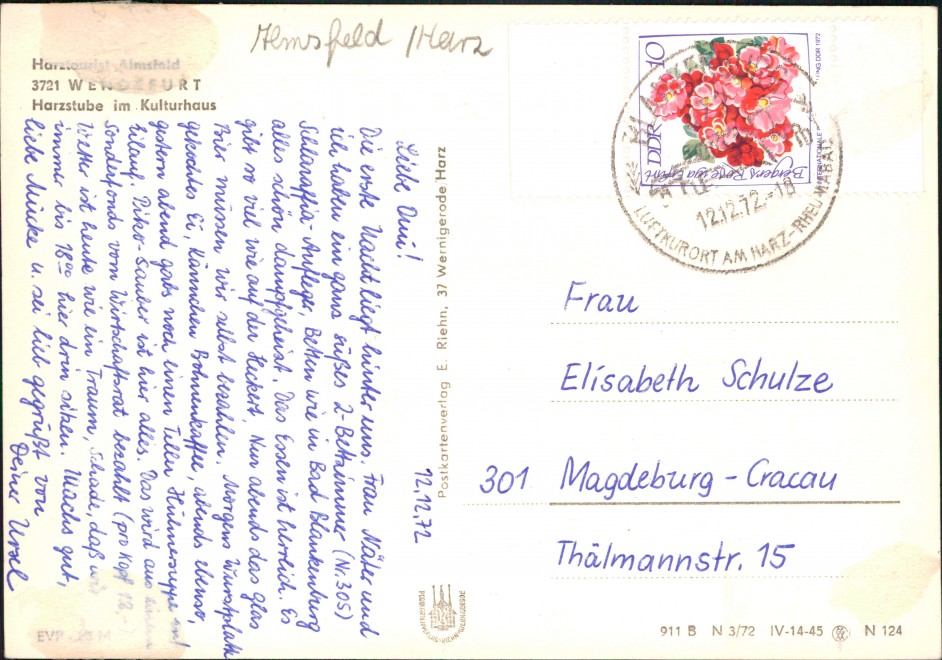 Almsfeld /Harz
Harztourist Almsfeld
3721 WENDEFURT
Harzstube im Kulturhaus
12.12.72
Liebe Omi!
Die erste Nacht liegt hinter uns. Frau Näter und
ich haben ein ganz süßes 2-Bettzimmer (Nr. 305)
Schlaraffia-Auflege, Betten wie in Bad Blankenburg
alles schön dampfgeheizt. Das Essen ist herrlich. Es
gibt so viel wie auf der Heckert. Nur abends das Glas
Bier müssen wir selbst bezahlen. Morgens Wurstplatte
gekochtes Ei, Kännchen Bohnenkaffee, abends ebenso,
gestern abend gabs noch einen Teller Hühnersuppe
hinauf. Piko-sauber ist hier alles. Das wird aus einem
Sonderfonds vom Wirtschaftsrat bezahlt (pro Kopf 12.-)
Wetter ist heute wie ein Traum, Schade, daß wir
immer bis 1800 hier drin sitzen. Machs gut,
liebe Mieke u. sei lieb gegrüßt von
Deiner Ursel
EVP M
Postkartenverlag E. Riehn, 37 Wernigerode Harz
DDR 10
Bergers Rose
INTERNATIONALE
DDR 1972
12.12.72-18
LUFTKURORT AM HARZ-RHEUMABAD
Frau
Elisabeth Schulze
301 Magdeburg-Cracau
Thälmannstr. 15
911 B N 3/72 IV-14-45 N 124